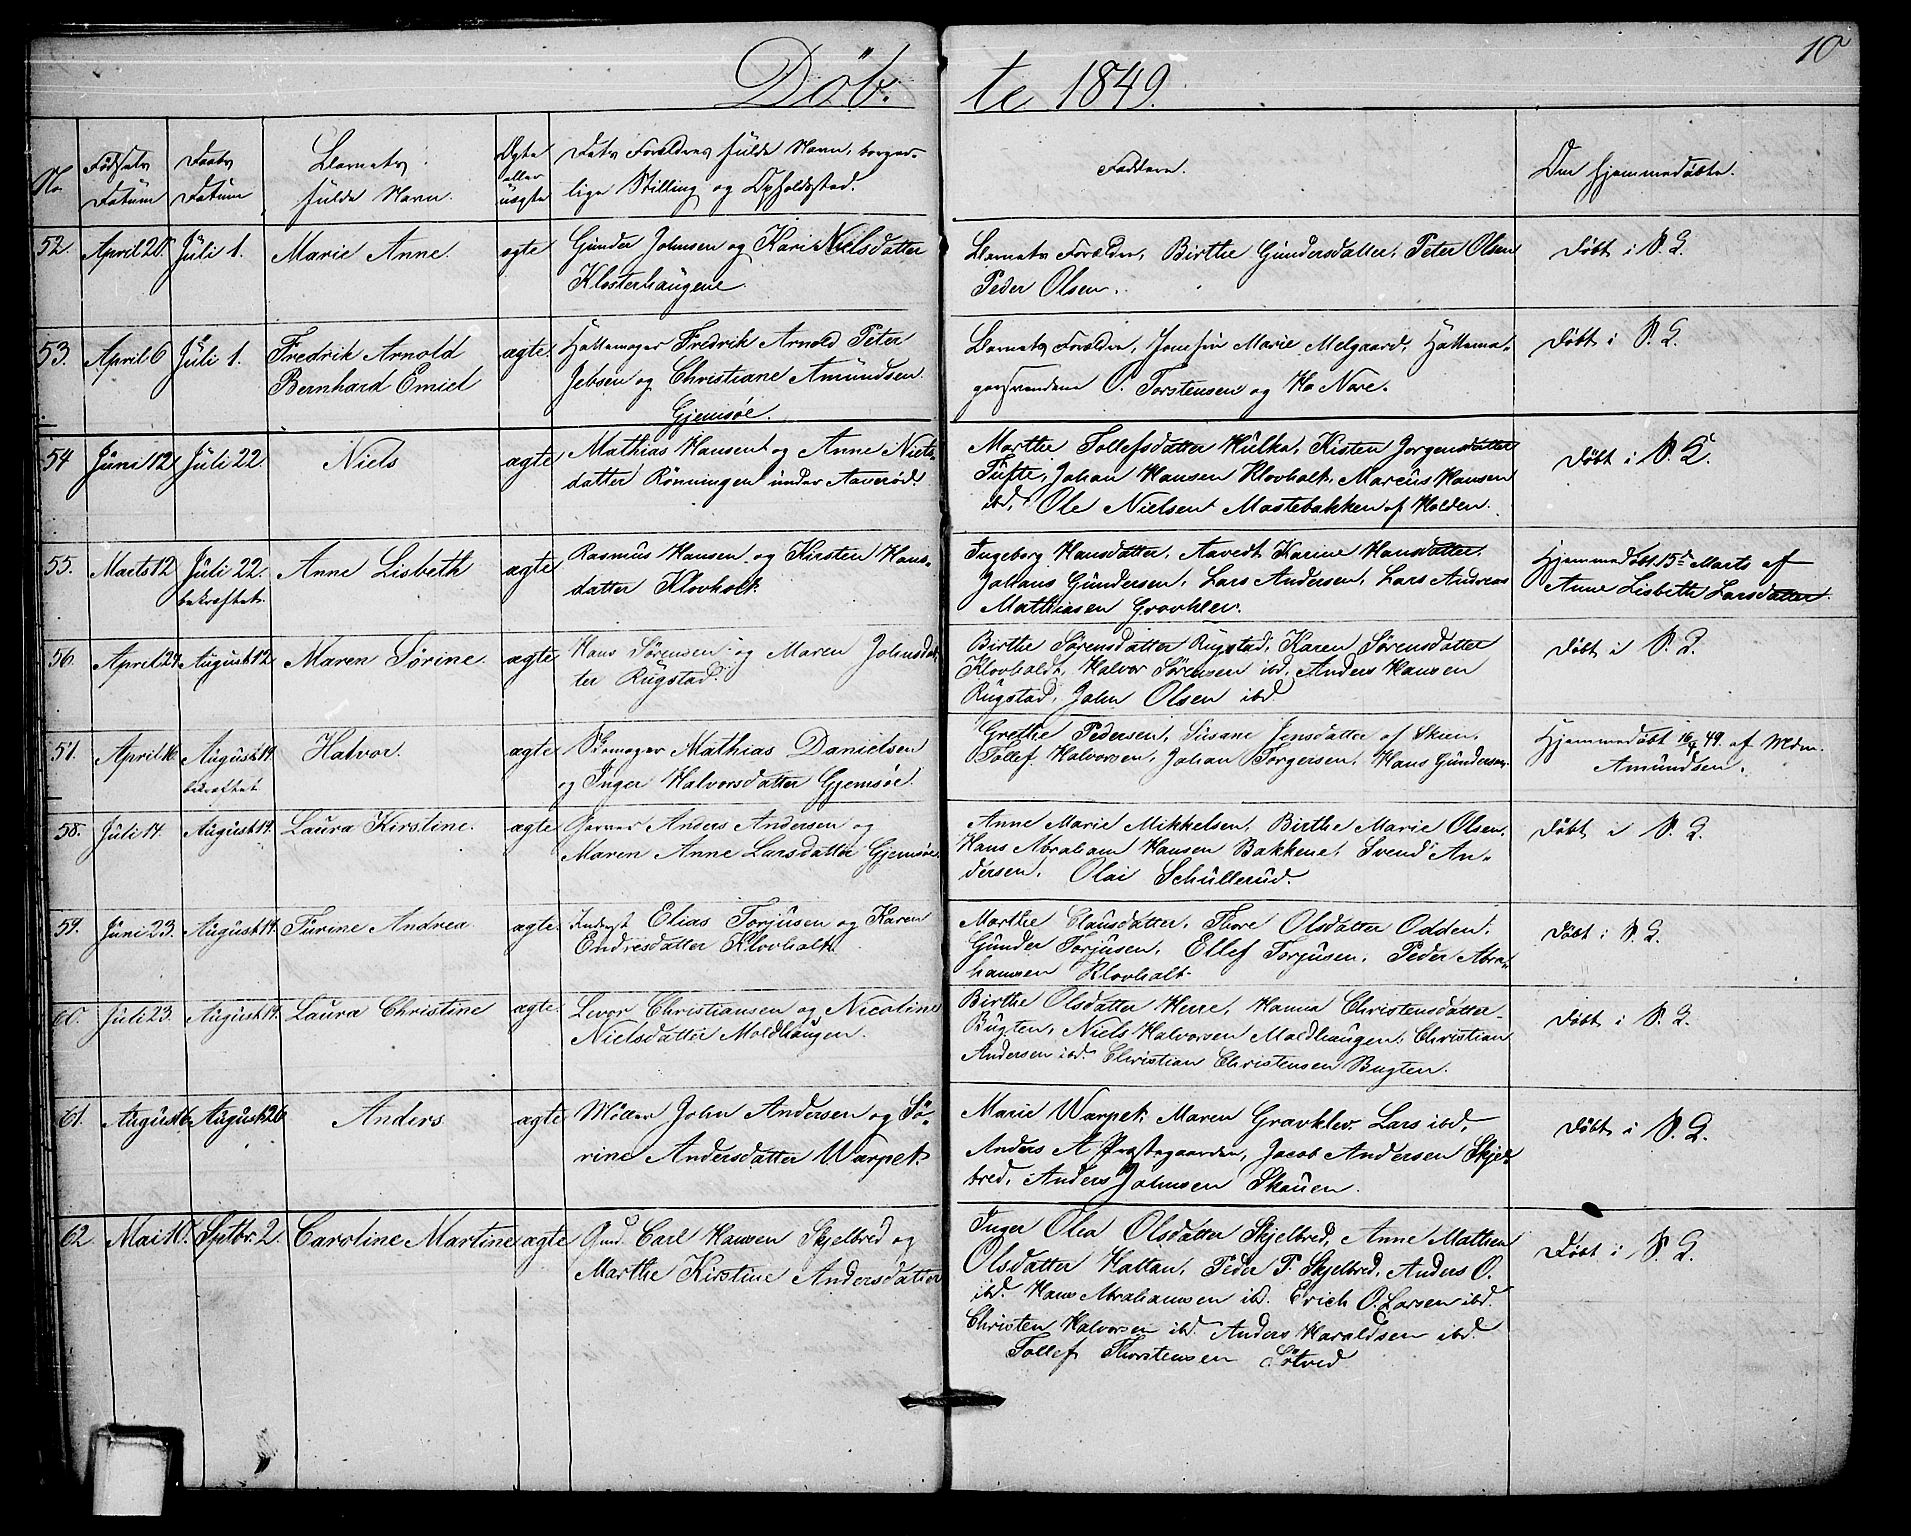 10
Döb- te 1849.
No
Födsels Datum
Daabs Datum
Barnets fulde Navn.
Ægte eller uægte
Dets Forældres fulde Navn, borgerlige Stilling og Opholdssted.
Faddere.
Om hjemmedøbte.
52. April 20. Juli 1. Marie Anne. ægte Gunder Johnsen og Kari Nielsdatter
Klosterhaugene.
Barnets Forældre, Birthe Gundersdatter, Peter Olsen
Peder Olsen.
Døbt i
53. April 6 Juli 1. Fredrik Arnold
Bernhard Emiel
ægte. Hattemager Fredrik Arnold Peter
Jebsen og Christiane Amundsen.
Gjemsøe.
Barnets Forældre, Marie Melgaard, Hattema-
gersvendene O. Torstensen og Nore.
Døbt i
54 Juni 12 Juli 22 Niels ægte Mathias Hansen og Anne Niels-
datter Rönningen under Aaverød.
Marthe Tollefsdatter Hulka, Kisten Jorgensdatter
Tufte, Johan Hansen Klovholt, Marcus Hansen
ibd, Ole Nielsen Mastebakken af Holden.
Døbt i
55. Marts 12 Juli 22.
bekræftet.
Anne Lisbeth ægte Rasmus Hansen og Kirsten Hans-
datter Klovholt.
Ingeborg Hansdatter, Aavedt, Karine Hansdatter,
Johans Gundersen, Lars Andersen, Lars Andreas
Mathiasen Gravklev.
Hjemmedøbt 15de Marts af
Anne Lisbeth Larsdatter.
56. April 24 August 12 Maren Sörine. ægte Hans Sørensen og Maren Johnsdat-
ter Rugstad.
Birthe Sørensdatter Rugstad, Karen Sørensdatter
Klovholdt, Halvor Sørensen ibd, Anders Hansen
Rugstad, John Olsen ibd
Døbt i
57. April 16 August 19.
bekræftet
Halvor. ægte Skomager Mathias Danielsen
og Inger Halvorsdatter Gjemsøe.
Grethe Pedersen, Susane Jensdatter af Skien,
Tollef Halvorsen, Johan Torgersen, Hans Gundersen.
Hjemmedøbt 16/4 49. af Mdm.
Amundsen.
58. Juli 14. August 19. Laura Kirstine. ægte Garver Anders Andersen og
Maren Anne Larsdatter Gjemsøe.
Anne Marie Mikkelsen, Birthe Marie Olsen,
Hans Abraham Hansen Bakkene, Svend An-
dersen, Olai Schullerud.
Døbt i
59. Juni 23. August 19. Turine Andrea ægte. Inderst Elias Torjusen og Karen
Endresdatter Klovholt.
Marthe Clausdatter, Thore Olsdatter Odden,
Gunder Torjusen, Ellef Torjusen, Peder Abra-
hamsen Klovholt.
Døbt i
60. Juli 23. August 19. Laura Christine ægte. Levor Christiansen og Nicoline
Nielsdatter Moldhaugen.
Birthe Olsdatter Herre, Hanna Christensdatter
Bugten, Niels Halvorsen Moldhaugen, Christian
Andersen ibd. Christian Christensen Bugten.
Døbt i
61. August 6 August 26 Anders ægte Møller John Andersen og Sö-
rine Andersdatter Warpet.
Marie Warpet, Maren Gravklev Lars ibd,
Anders A Præstegaarden, Jacob Andersen Skjel-
bred, Anders Johnsen Skauen.
Døbt i
62 Mai 10. Sptbr. 2. Caroline Martine ægte Gmd. Carl Hansen Skjelbred og
Marthe Kirstine Andersdatter
Inger Olea Olsdatter Skjelbred, Anne Mathea
Olsdatter Hattan, Peder P. Skjelbred, Anders O.
ibd. Hans Abrahamsen ibd. Erich O. Larsen ibd.
Christen Halvorsen ibd. Anders Haraldsen ibd.
Tollef Thorstensen Sötved
Døbt i